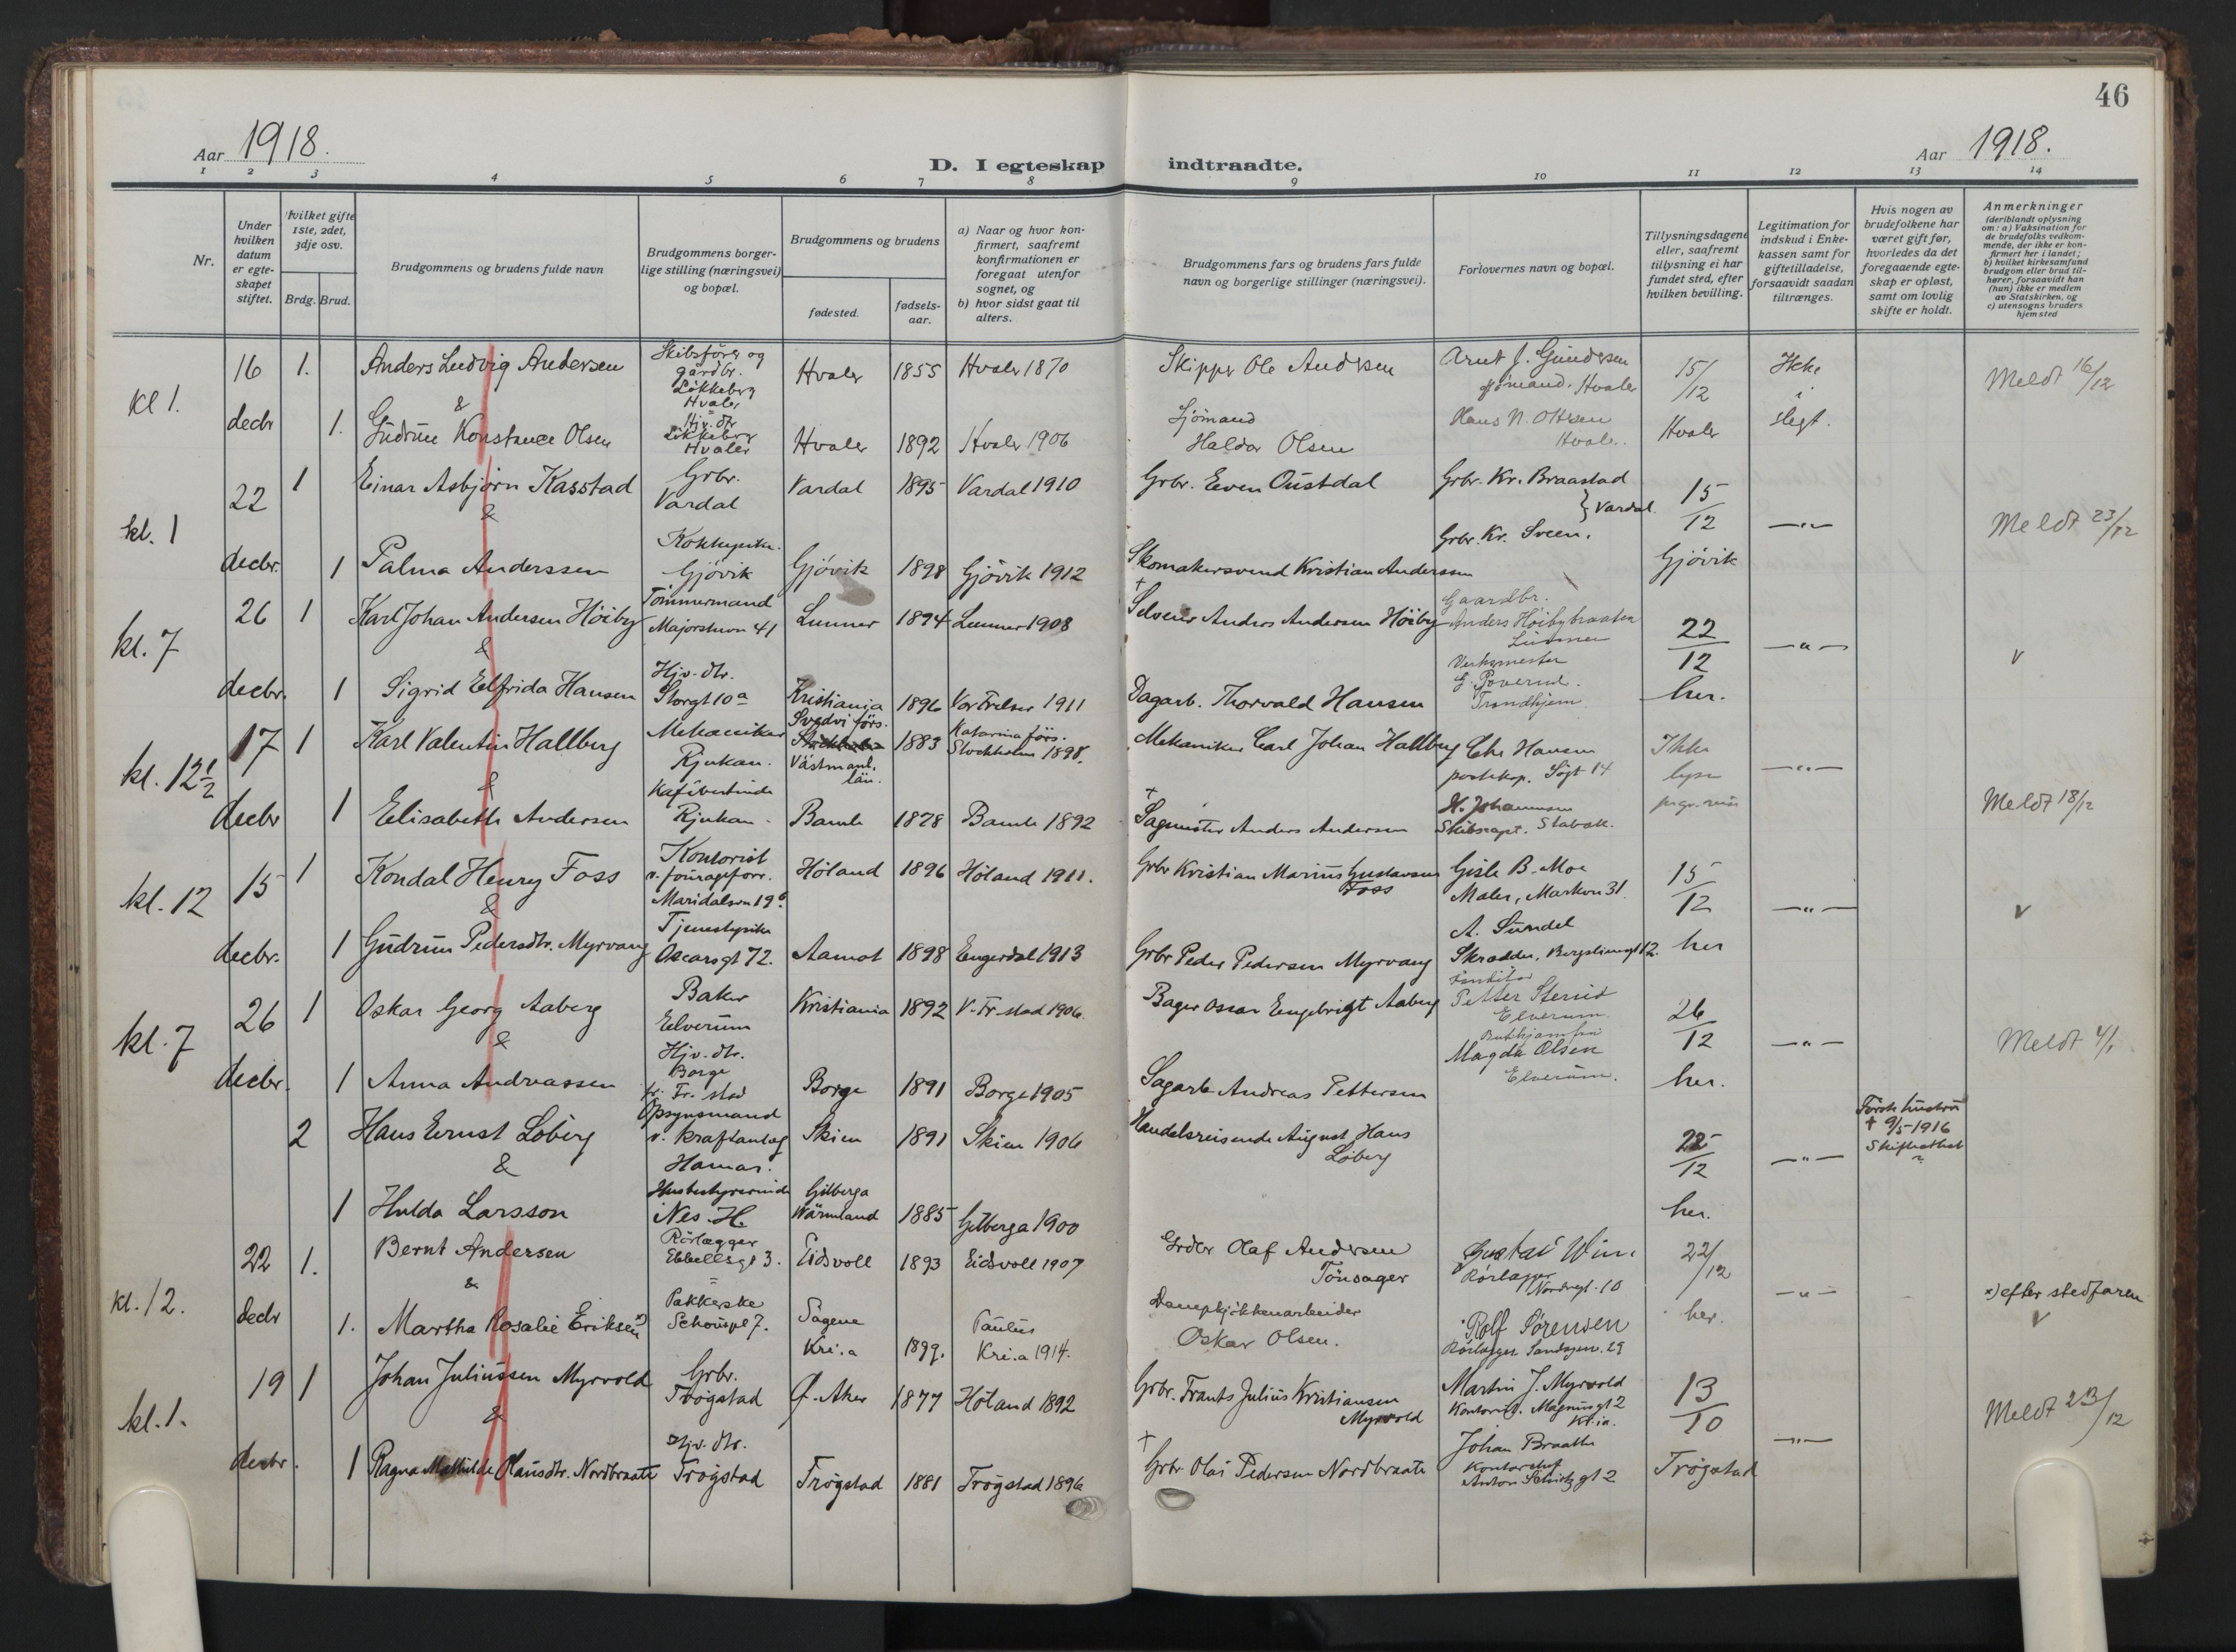 46
Aar 1918.
D. I egteskap indtraadte.
Aar 1918.
1 2 3 4 5 6 7 8 9 10 11 12 13 14
Nr.
Under hvilken datum er egteskapet stiftet.
Hvilket gifte 1ste, 2det, 3dje osv.
Brdg. Brud.
Brudgommens og brudens fulde navn
Brudgommens borgerlige stilling (næringsvei) og bopæl.
Brudgommens og brudens
fødested.
fødselsaar.
a) Naar og hvor konfirmert, saafremt konfirmationen er foregaat utenfor sognet, og
b) hvor sidst gaat til alters.
Brudgommens fars og brudens fars fulde navn og borgerlige stillinger (næringsvei).
Forlovernes navn og bopæl.
Tillysningsdagene eller, saafremt tillysning ei har fundet sted, efter hvilken bevilling.
Legitimation for indskud i Enkekassen samt for giftetilladelse, forsaavidt saadan tiltrænges.
Hvis nogen av brudefolkene har været gift før, hvorledes da det foregaaende egteskap er opløst, samt om lovlig skifte er holdt.
Anmerkninger (deriblandt oplysning om: a) Vaksination for de brudefolks vedkommende, der ikke er konfirmert her i landet; b) hvilket kirkesamfund brudgom eller brud tilhører, forsaavidt han (hun) ikke er medlem av Statskirken, og c) utensogns bruders hjemsted
kl 1. 16 decbr 1. Anders Ludvig Andersen Skibsfører og gårdbr. Løkkeberg Hvaler Hvaler 1855 Hvaler 1870 Skipper Ole Andersen Arnt J. Gundersen sjømand. Hvaler 15/12 Hvaler Ikke i slegt. Meldt 16/12
&
1. Gudrun Konstance Olsen Hjv. dtr Løkkeberg Hvaler Hvaler 1892 Hvaler 1906 Sjømand Haldor Olsen Hans N. Ottesen Hvaler.
kl. 1 22 decbr. 1 Einar Asbjørn Kasstad Grbr. Vardal Vardal 1895 Vardal 1910 Grbr. Even Oustdal Grbr. Kr. Braastad } Vardal. 15/12 Gjøvik —"— Meldt 23/12
&
1 Palma Anderssen Gjøvik Gjøvik 1898 Gjøvik 1912 Skomakersvend Kristian Anderssen Grbr. Kr. Sveen.
kl. 7 26 decbr. 1 Karl Johan Andersen Høiby Tømmermand Majorstuvn 41 Lunner 1894 Lunner 1908 † Selveier Anders Andersen Høiby Gaardbr. Anders Høibybraaten Lunner 22/12 her. —"— v
&
1 Sigrid Elfrida Hansen Hjv. dtr. Storgt 10a Kristiania 1896 Vor Frelser 1911 Dagarb. Thorvald Hansen Verksmester E. Poverud. Trondhjem
kl. 12½ 17 decbr 1 Karl Valentin Hallberg Mekaniker Rjukan. Svedvi förs. Västmanl. län. 1883 Katarina förs. Stockholm 1898. Mekaniker Carl Johan Hallberg Chr Hansen posteksp. Søgt 14 Ikke lysn —"— Meldt 18/12
&
1 Elisabeth Andersen Kafévertinde Rjukan Bamle 1878 Bamle 1892 † Sagmester Anders Andersen H. Johannesen Skibscapt. Stabæk.
kl. 12 15 decbr. 1 Kondal Henry Foss Kontorist v. fourageforr. Maridalsvn 19b Høland 1896 Høland 1911. Grbr Kristian Marius Gustavsen Foss Gisle B. Moe Maler, Markvn 31. 15/12 her —"— v
&
1 Gudrun Pedersdtr. Myrvang Tjenestepike Oscarsgt 72. Aamot 1898 Engerdal 1913 Grbr Peder Pedersen Myrvang A. Sundel Skrædder, Bergsliensgt 12.
kl. 7 26 decbr. 1 Oskar Georg Aaberg Baker Elverum Kristiania 1892 V. Fr. stad 1906. Bager Oscar Engebrigt Aaberg Petter Stenid Elverum. 26/12 her. —"— Meldt 4/1
&
1 Anna Andreassen Hjv. dtr. Borge pr. Fr. stad Borge 1891 Borge 1905 Sagarb. Andreas Pettersen Magda Olsen Elverum.
2 Hans Ernst Løberg Opsynsmand v. kraftanlæg Hamar. Skien 1891 Skien 1906 Handelsreisende August Hans Løberg 22/12 her. —"— Første hustru † 9/5-1916
&
1 Hulda Larsson Husbestyrerinde Nes H. Gilberga Wärmland 1885 Gilberga 1900
kl. 12. 22 decbr 1. Bernt Andersen Rørlægger Ebbellsgt 3. Eidsvoll 1893 Eidsvoll 1907 Olaf Andersen Tønsager Gustav Rørlægger Nordregt. 10 22/12 her. —"— x) efter stedfaren v
&
1. Martha Rosalie Eriksen x) Pakkerske Schouspl 7. Sagene Kri.a 1899. Paulus Kri.a 1914. Dampkjøkkenarbeider Oskar Olsen. Rolf Sørensen Rørlægger Sandakervn. 29
kl. 1. 19 decbr. 1 Johan Juliussen Myrvold Grbr. Trøgstad Ø. Aker 1877 Høland 1892 Grbr. Frants Julius Kristiansen Myrvold Martin J. Myrvold Kontorist. Magnusgt 2 Kr.ia. 13/10 Trøgstad —"— Meldt 23/12
&
1 Ragna Mathilde Olausdtr. Nordbraate Hjv. dtr. Trøgstad Trøgstad 1881 Trøgstad 1896 † Grbr Olai Pedersen Nordbraate Johan Braathe Kontorchef Anton Schiøtz gt 2